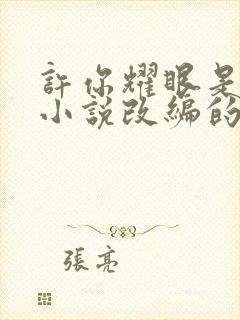 許你耀眼是
小說改編的
張亮